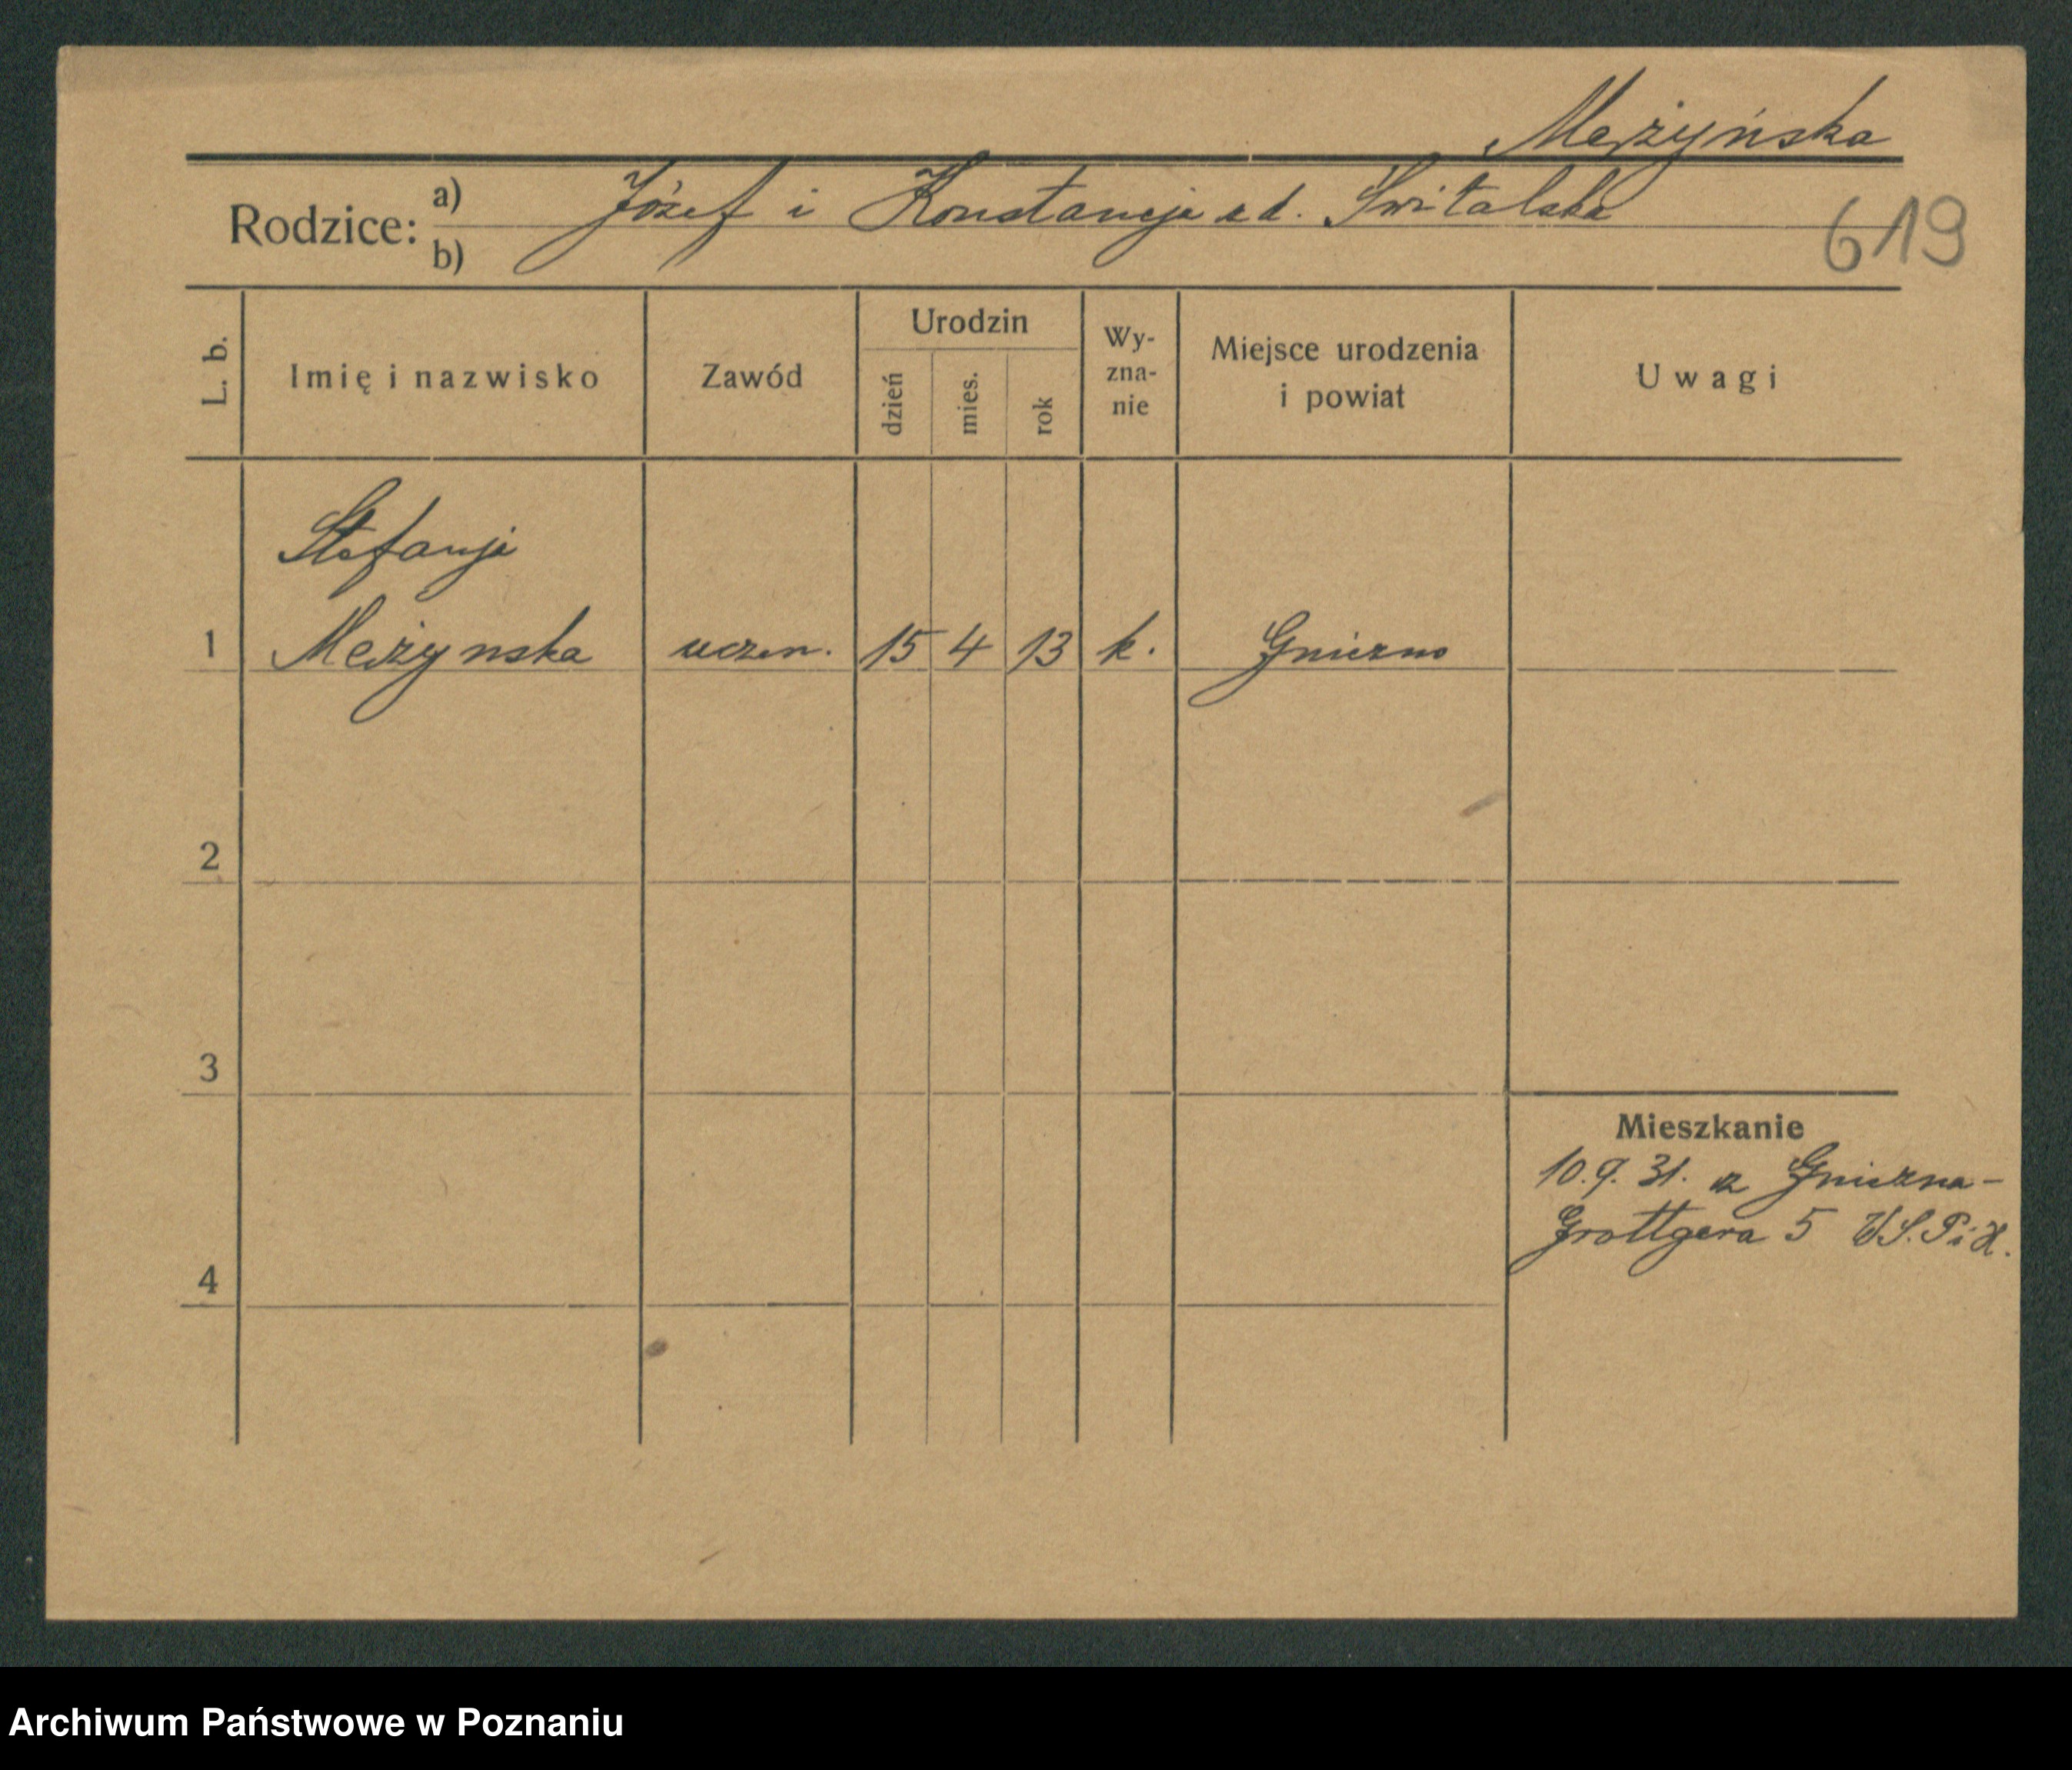 Mężyńska
Rodzice: a) Józef i Konstancja zd. Świtalska
b)
619
L. b. Imię i nazwisko Zawód Urodzin dzień mies. rok Wy-zna-nie Miejsce urodzenia i powiat Uwagi
Stefanja
1 Mężynska uczen. 15 4 13 k. Gniezno
2
3
Mieszkanie
10.9.31. z Gniezna-
Grottgera 5
4
Archiwum Państwowe w Poznaniu